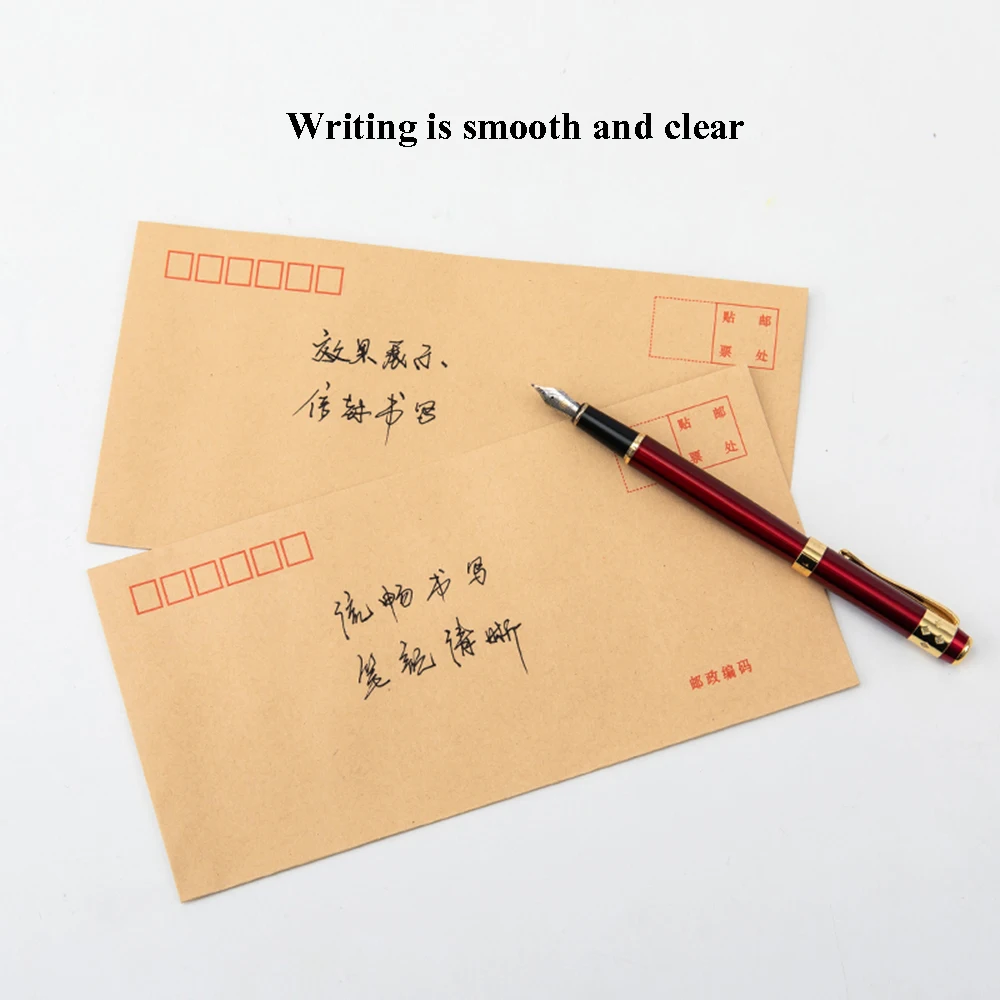 Writing is smooth and clear
贴 邮
票 处
效果展示、
信封书写
贴 邮
票 处
流畅书写
笔记清晰
邮政编码